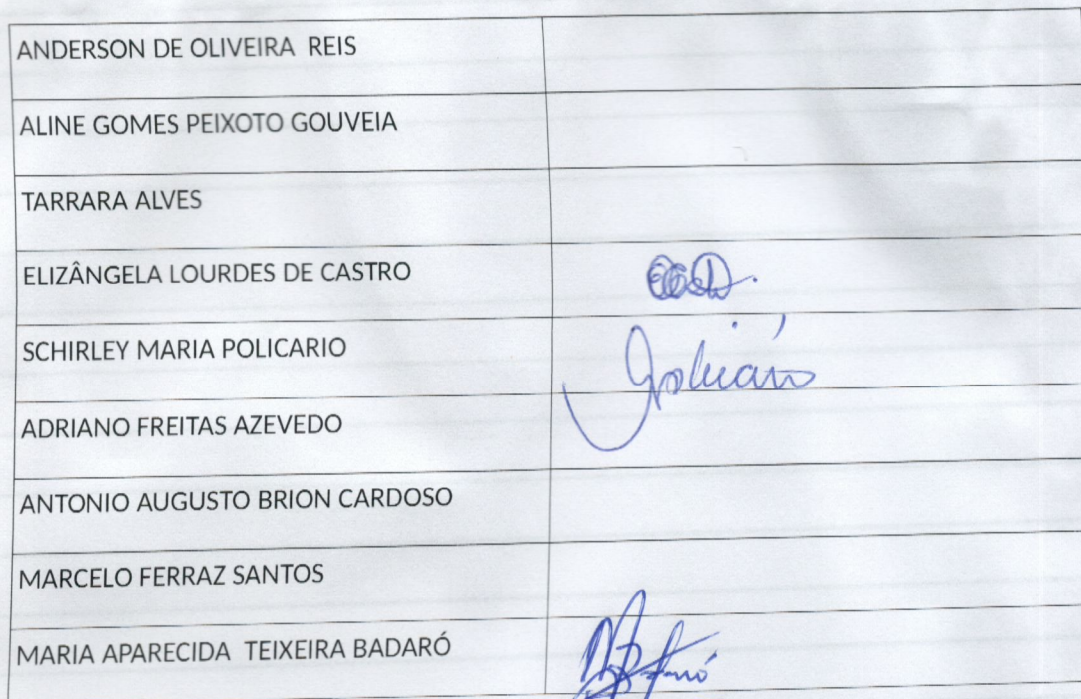 ANDERSON DE OLIVEIRA REIS
ALINE GOMES PEIXOTO GOUVEIA
TARRARA ALVES
ELIZÂNGELA LOURDES DE CASTRO
SCHIRLEY MARIA POLICARIO
ADRIANO FREITAS AZEVEDO
ANTONIO AUGUSTO BRION CARDOSO
MARCELO FERRAZ SANTOS
MARIA APARECIDA TEIXEIRA BADARÓ